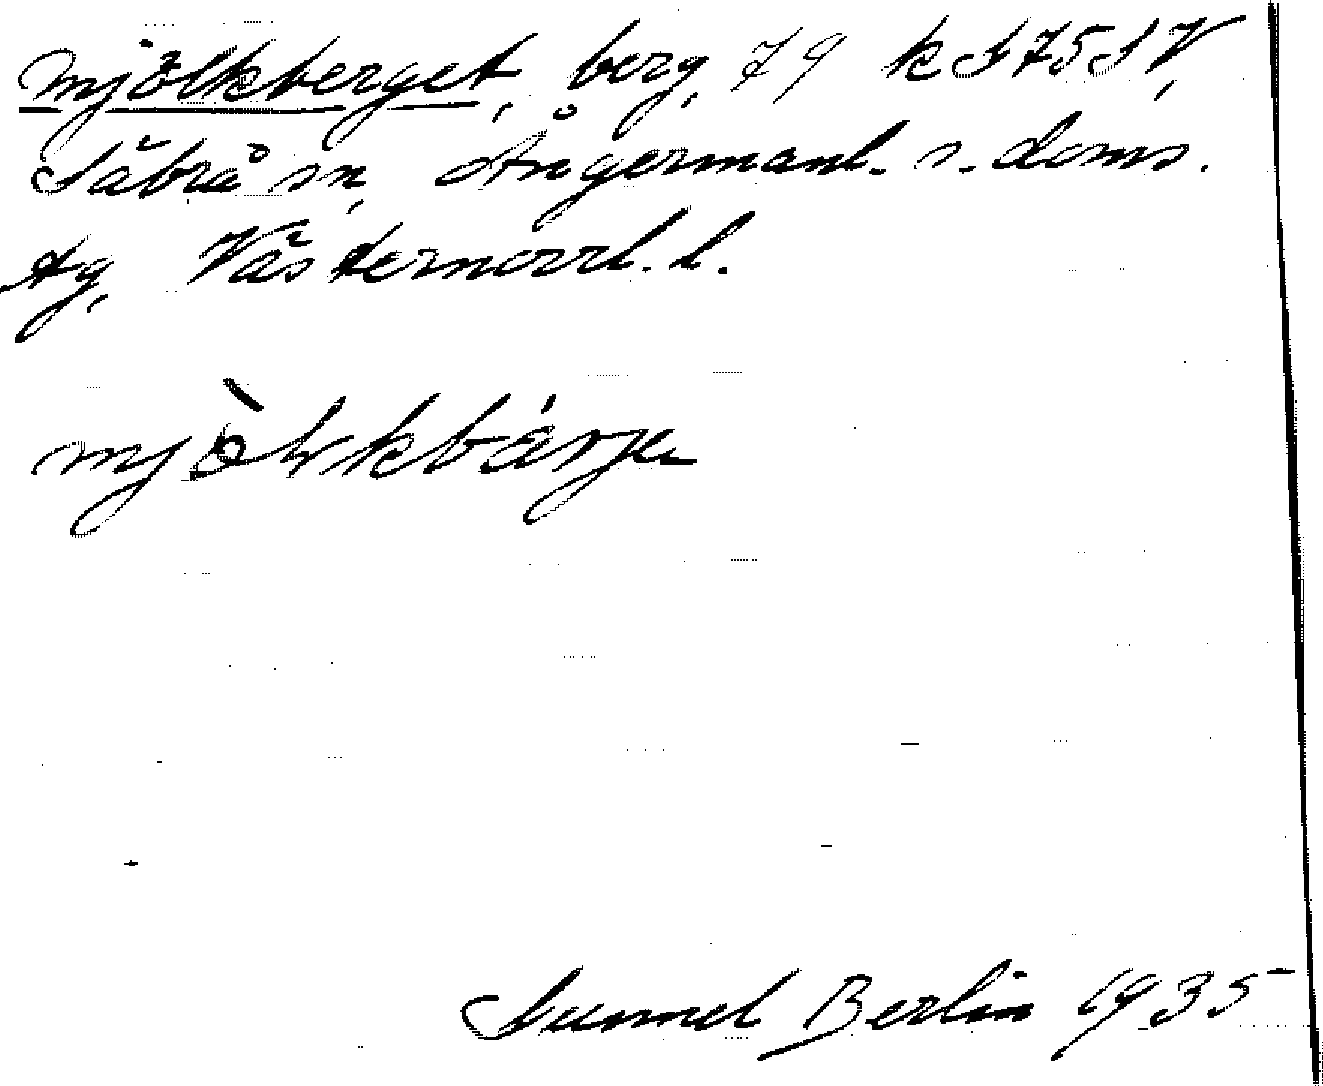 Mjölkberget, berg, 79 k S 75 SV,
Säbrå sn, Ångermanl. s. doms.
tg, Västernorrl. l.
mjòlkbárje
Gunnel Berlin 1935